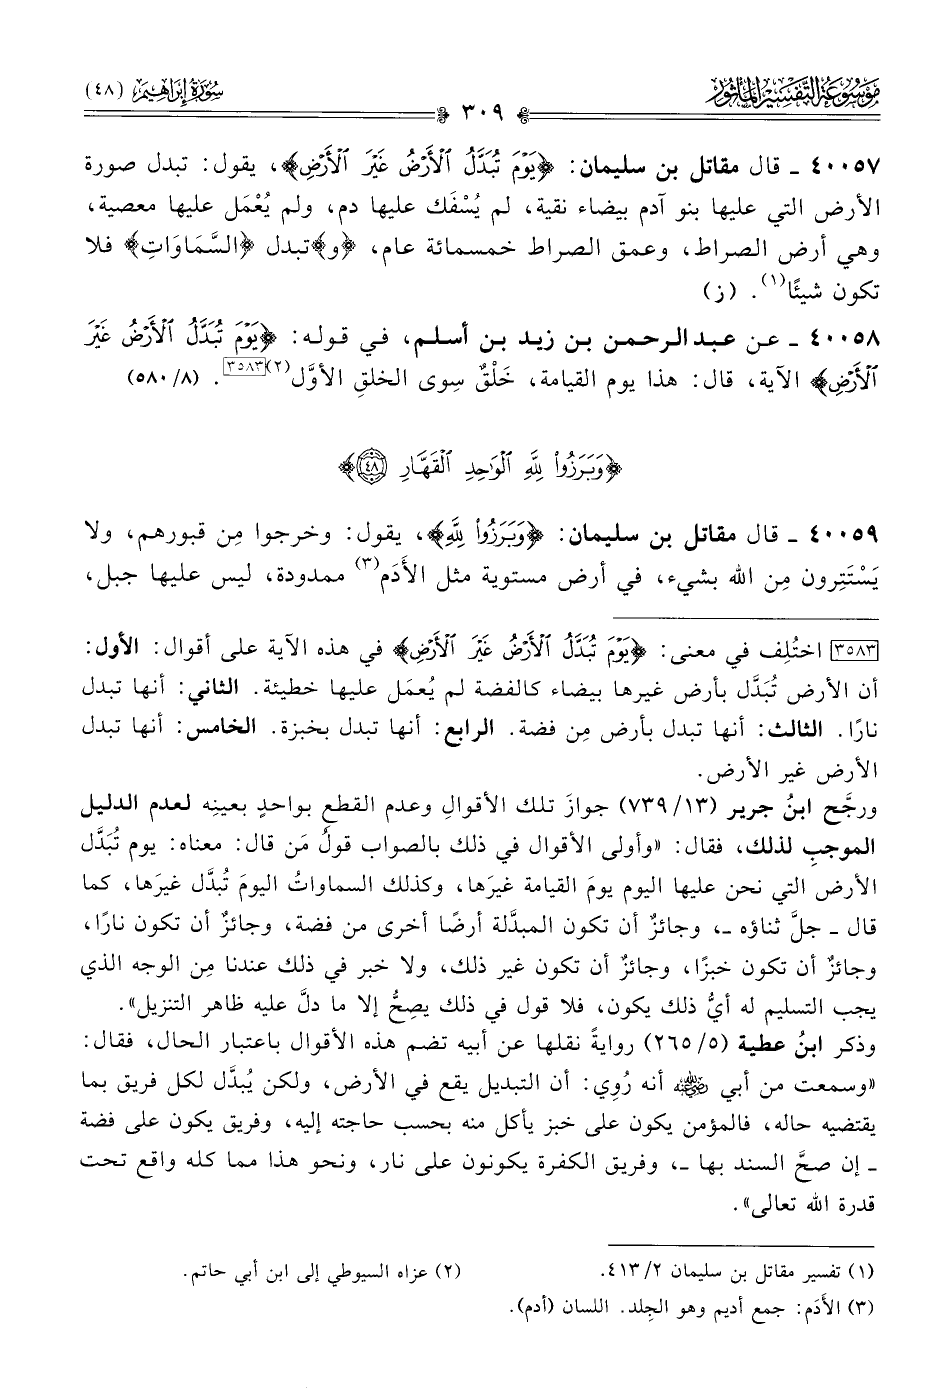 موسوعة التفسير المأثور
سورة إبراهيم (٤٨)
٣٠٩
٤٠٠٥٧ ـ قال مقاتل بن سليمان: ﴿يَوْمَ تُبَدَّلُ ٱلْأَرْضُ غَيْرَ ٱلْأَرْضِ﴾، يقول: تبدل صورة
الأرض التي عليها بنو آدم بيضاء نقية، لم يُسْفَك عليها دم، ولم يُعْمَل عليها معصية،
وهي أرض الصراط، وعمق الصراط خمسمائة عام، ﴿و﴾تبدل ﴿السَّمَاوَاتِ﴾ فلا
تكون شيئًا(١). (ز)
٤٠٠٥٨ ـ عن عبد الرحمن بن زيد بن أسلم، في قوله: ﴿يَوْمَ تُبَدَّلُ ٱلْأَرْضُ غَيْرَ
ٱلْأَرْضِ﴾ الآية، قال: هذا يوم القيامة، خَلْقٌ سِوى الخلقِ الأوَّل(٢)[٣٥٨٣]. (٨/ ٥٨٠)
﴿وَبَرَزُوا۟ لِلَّهِ ٱلْوَٰحِدِ ٱلْقَهَّارِ ٤٨﴾
٤٠٠٥٩ ـ قال مقاتل بن سليمان: ﴿وَبَرَزُوا۟ لِلَّهِ﴾، يقول: وخرجوا مِن قبورهم، ولا
يَسْتَتِرون مِن الله بشيء، في أرض مستوية مثل الأَدَم(٣) ممدودة، ليس عليها جبل،
[٣٥٨٣] اختُلِف في معنى: ﴿يَوْمَ تُبَدَّلُ ٱلْأَرْضُ غَيْرَ ٱلْأَرْضِ﴾ في هذه الآية على أقوال: الأول:
أن الأرض تُبَدَّل بأرض غيرها بيضاء كالفضة لم يُعمَل عليها خطيئة. الثاني: أنها تبدل
نارًا. الثالث: أنها تبدل بأرض مِن فضة. الرابع: أنها تبدل بخبزة. الخامس: أنها تبدل
الأرض غير الأرض.
ورجَّح ابنُ جرير (١٣/ ٧٣٩) جوازَ تلك الأقوال وعدم القطع بواحدٍ بعينِه لعدم الدليل
الموجبِ لذلك، فقال: «وأولى الأقوال في ذلك بالصواب قولُ مَن قال: معناه: يوم تُبَدَّل
الأرض التي نحن عليها اليوم يومَ القيامة غيرَها، وكذلك السماواتُ اليومَ تُبدَّل غيرَها، كما
قال ـ جلَّ ثناؤه ـ، وجائزٌ أن تكون المبدَّلة أرضًا أخرى من فضة، وجائزٌ أن تكون نارًا،
وجائزٌ أن تكون خبزًا، وجائزٌ أن تكون غير ذلك، ولا خبر في ذلك عندنا مِن الوجه الذي
يجب التسليم له أيُّ ذلك يكون، فلا قول في ذلك يصِحُّ إلا ما دلَّ عليه ظاهر التنزيل».
وذكر ابنُ عطية (٥/ ٢٦٥) روايةً نقلها عن أبيه تضم هذه الأقوال باعتبار الحال، فقال:
«وسمعت من أبي رضي الله عنه أنه رُوِي: أن التبديل يقع في الأرض، ولكن يُبدَّل لكل فريق بما
يقتضيه حاله، فالمؤمن يكون على خبز يأكل منه بحسب حاجته إليه، وفريق يكون على فضة
ـ إن صحَّ السند بها ـ، وفريق الكفرة يكونون على نار، ونحو هذا مما كله واقع تحت
قدرة الله تعالى».
(١) تفسير مقاتل بن سليمان ٢/ ٤١٣.
(٢) عزاه السيوطي إلى ابن أبي حاتم.
(٣) الأَدَم: جمع أديم وهو الجِلد. اللسان (أدم).